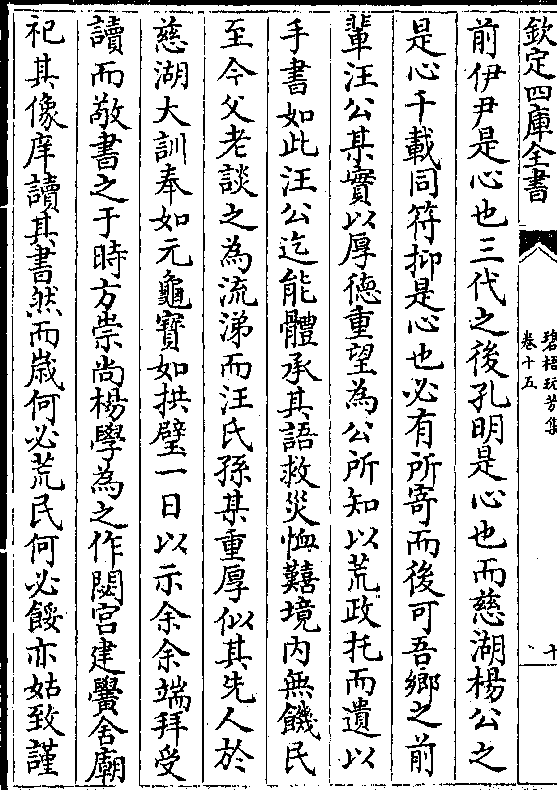 欽定四庫全書
碧梧玩芳集
卷十五
十
前伊尹是心也三代之後孔明是心也而慈湖楊公之
是心千載同符抑是心也必有所寄而後可吾鄉之前
輩汪公某實以厚德重望為公所知以荒政托而遺以
手書如此汪公迄能體承其語救災恤囏境内無饑民
至今父老談之為流涕而汪氏孫某重厚似其先人於
慈湖大訓奉如元龜寶如拱璧一日以示余余端拜受
讀而敬書之于時方崇尚楊學為之作閟宮建黌舍廟
祀其像庠讀其書然而嵗何必荒民何必餒亦姑致謹